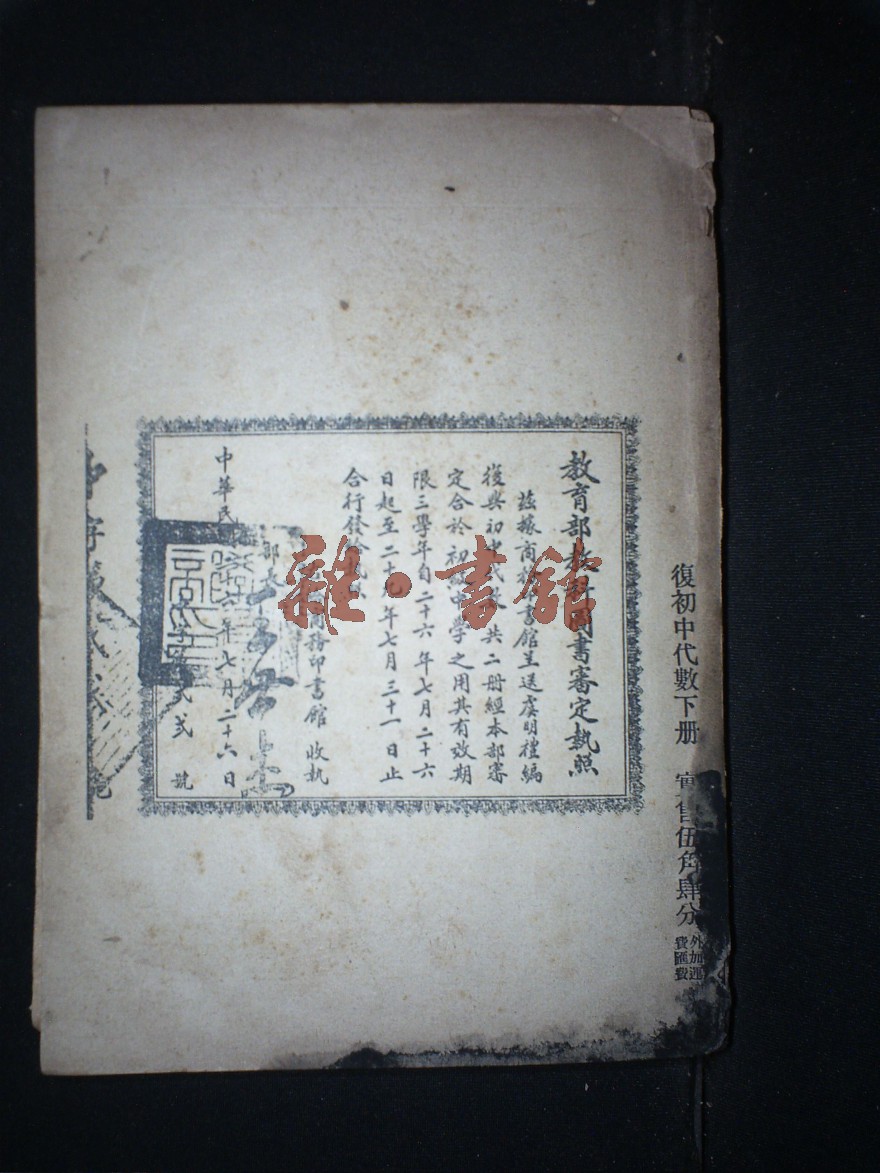 復初中代數下册 實售伍角肆分
外加運
費匯費
教育部教科圖書審定執照
茲據商務印書館呈送虞明禮編
復興初中代數共二册經本部審
定合於初級中學之用其有效期
限三學年自二十六年七月二十六
日起至二十九年七月三十一日止
合行發給執照
商務印書館 收執
部長
中華民國 年七月二十六日
號
雜·書館